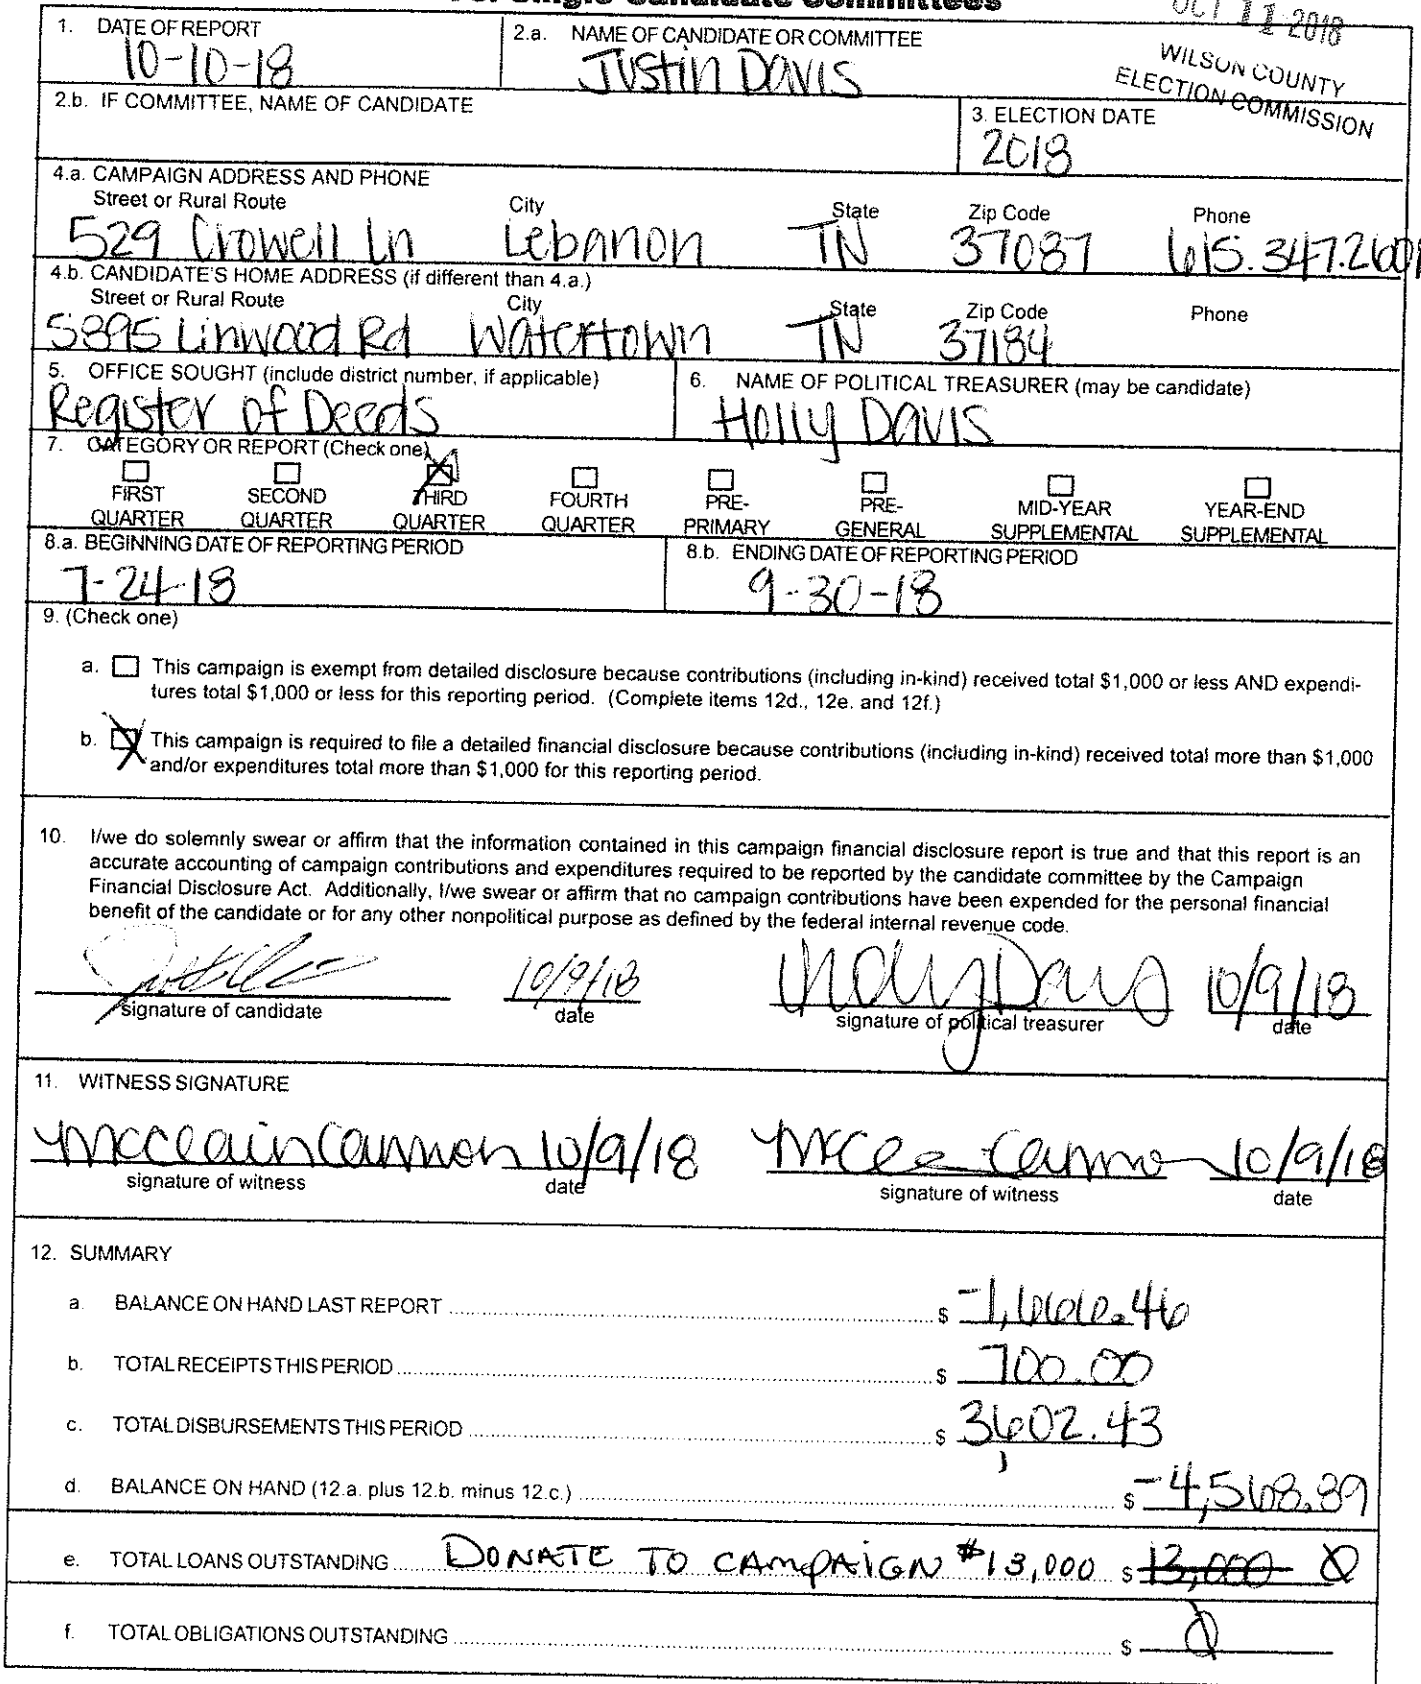 For Single Candidate Committees
OCT 11 2018
WILSON COUNTY
ELECTION COMMISSION
1. DATE OF REPORT
10-10-18
2.a. NAME OF CANDIDATE OR COMMITTEE
Justin Davis
2.b. IF COMMITTEE, NAME OF CANDIDATE
3. ELECTION DATE
2018
4.a. CAMPAIGN ADDRESS AND PHONE
Street or Rural Route City State Zip Code Phone
529 Crowell Ln Lebanon TN 37087 615.347.2601
4.b. CANDIDATE'S HOME ADDRESS (if different than 4.a.)
Street or Rural Route City State Zip Code Phone
5895 Linwood Rd Watertown TN 37184
5. OFFICE SOUGHT (include district number, if applicable)
Register of Deeds
6. NAME OF POLITICAL TREASURER (may be candidate)
Holly Davis
7. CATEGORY OR REPORT (Check one)
FIRST SECOND THIRD FOURTH PRE- PRE- MID-YEAR YEAR-END
QUARTER QUARTER QUARTER QUARTER PRIMARY GENERAL SUPPLEMENTAL SUPPLEMENTAL
8.a. BEGINNING DATE OF REPORTING PERIOD
7-24-18
8.b. ENDING DATE OF REPORTING PERIOD
9-30-18
9. (Check one)
a. This campaign is exempt from detailed disclosure because contributions (including in-kind) received total $1,000 or less AND expendi-
tures total $1,000 or less for this reporting period. (Complete items 12d., 12e. and 12f.)
b. This campaign is required to file a detailed financial disclosure because contributions (including in-kind) received total more than $1,000
and/or expenditures total more than $1,000 for this reporting period.
10. I/we do solemnly swear or affirm that the information contained in this campaign financial disclosure report is true and that this report is an
accurate accounting of campaign contributions and expenditures required to be reported by the candidate committee by the Campaign
Financial Disclosure Act. Additionally, I/we swear or affirm that no campaign contributions have been expended for the personal financial
benefit of the candidate or for any other nonpolitical purpose as defined by the federal internal revenue code.
10/9/18 Holly Davis 10/9/18
signature of candidate date signature of political treasurer date
11. WITNESS SIGNATURE
McClain Cannon 10/9/18 Cannon 10/9/18
signature of witness date signature of witness date
12. SUMMARY
a. BALANCE ON HAND LAST REPORT $ -1,666.46
b. TOTAL RECEIPTS THIS PERIOD $ 700.00
c. TOTAL DISBURSEMENTS THIS PERIOD $ 3,602.43
d. BALANCE ON HAND (12.a. plus 12.b. minus 12.c.) $ -4,568.89
e. TOTAL LOANS OUTSTANDING DONATE TO CAMPAIGN $13,000 $ 13,000 0
f. TOTAL OBLIGATIONS OUTSTANDING $ 0